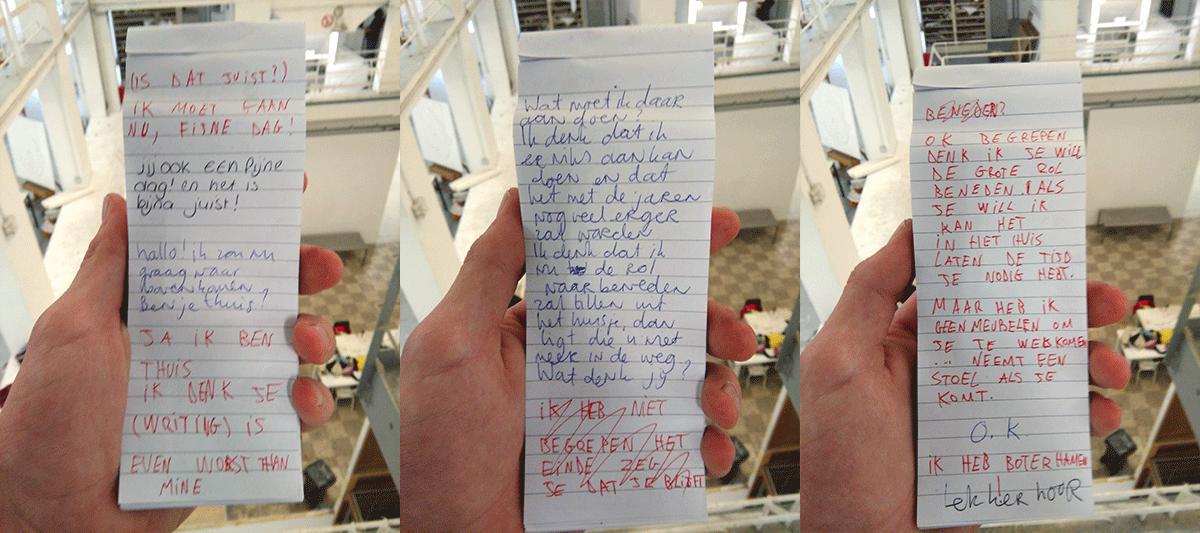 (IS DAT JUIST?)
IK MOET GAAN
NU, FIJNE DAG!
JIJ ook een Fijne
dag! en het is
bijna juist!
hallo! ik zou nu
graag naar
boven komen.
Ben je thuis?
JA IK BEN
THUIS
IK DENK JE
(WRITING) IS
EVEN WORST THAN
MINE
Wat moet ik daar
aan doen?
Ik denk dat ik
er niks aan kan
doen en dat
het met de jaren
nog veel erger
zal worden
Ik denk dat ik
nu de rol
naar beneden
zal tillen uit
het huisje, dan
ligt die u niet
meer in de weg.
Wat denk jij?
IK HEB NIET
BEGREPEN HET
EINDE ZEG
JE DAT JE BLIJFT
BENEDEN?
OK BEGREPEN
DENK IK JE WILL
DE GROTE ROL
BENEDEN. ALS
JE WILL IK
KAN HET
IN HET HUIS
LATEN DE TIJD
JE NODIG HEBT.
MAAR HEB IK
GEEN MEUBELEN OM
JE TE WELKOMEN
... NEEMT EEN
STOEL ALS JE
KOMT.
O.K.
IK HEB BOTERHAMEN
Lekker hoor